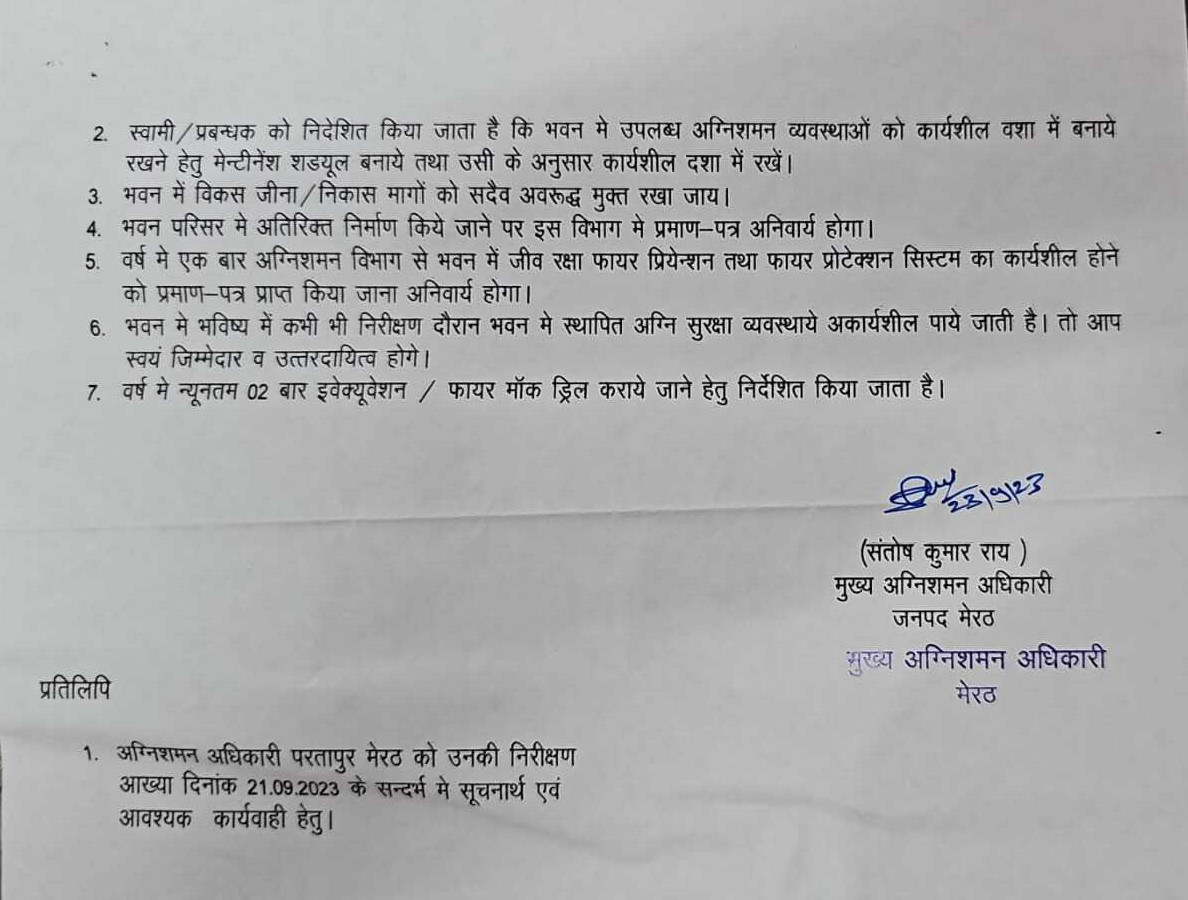 2. स्वामी/प्रबन्धक को निदेशित किया जाता है कि भवन मे उपलब्ध अग्निशमन व्यवस्थाओं को कार्यशील वशा में बनाये
रखने हेतु मेन्टीनेंश शडयूल बनाये तथा उसी के अनुसार कार्यशील दशा में रखें।
3. भवन में विकस जीना/निकास मागों को सदैव अवरूद्ध मुक्त रखा जाय।
4. भवन परिसर मे अतिरिक्त निर्माण किये जाने पर इस विभाग मे प्रमाण–पत्र अनिवार्य होगा।
5. वर्ष मे एक बार अग्निशमन विभाग से भवन में जीव रक्षा फायर प्रियेन्शन तथा फायर प्रोटेक्शन सिस्टम का कार्यशील होने
को प्रमाण–पत्र प्राप्त किया जाना अनिवार्य होगा।
6. भवन मे भविष्य में कभी भी निरीक्षण दौरान भवन मे स्थापित अग्नि सुरक्षा व्यवस्थाये अकार्यशील पाये जाती है। तो आप
स्वयं जिम्मेदार व उत्तरदायित्व होगे।
7. वर्ष मे न्यूनतम 02 बार इवेक्यूवेशन / फायर मॉक ड्रिल कराये जाने हेतु निर्देशित किया जाता है।
23/9/23
(संतोष कुमार राय )
मुख्य अग्निशमन अधिकारी
जनपद मेरठ
मुख्य अग्निशमन अधिकारी
मेरठ
प्रतिलिपि
1. अग्निशमन अधिकारी परतापुर मेरठ को उनकी निरीक्षण
आख्या दिनांक 21.09.2023 के सन्दर्भ मे सूचनार्थ एवं
आवश्यक कार्यवाही हेतु।